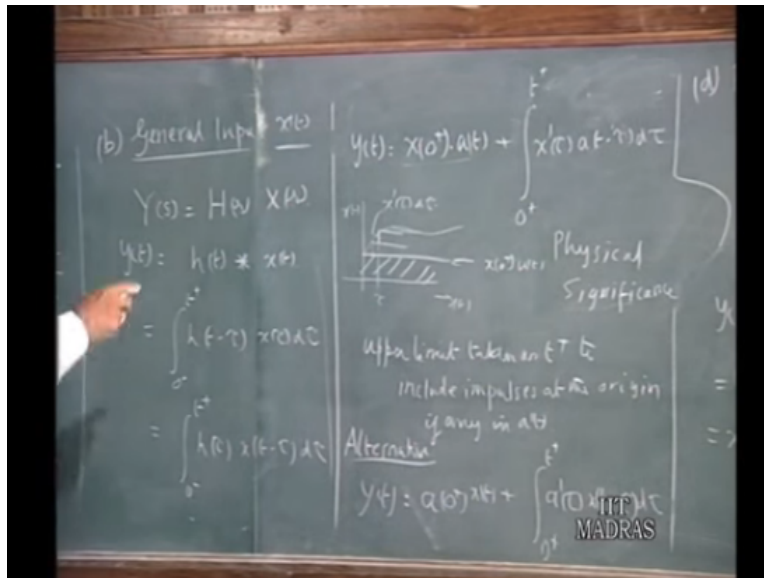 (b) General Input x(t)
Y(s) = H(s) X(s)
y(t) = h(t) * x(t)
= ∫_{0⁻}^{t⁺} h(t-τ) x(τ) dτ
= ∫_{0⁻}^{t⁺} h(τ) x(t-τ) dτ
y(t) = x(0⁺)·a(t) + ∫_{0⁺}^{t⁺} x'(τ) a(t-τ) dτ
x'(τ) dτ
x(0⁺) u(t)
τ
Physical
Significance
upper limit taken as t⁺ to
include impulses at the origin
if any in a(t)
Alternative
y(t) = a(0⁺) x(t) + ∫_{0⁺}^{t⁺} a'(τ) dτ
(d)
=
=
IIT
MADRAS